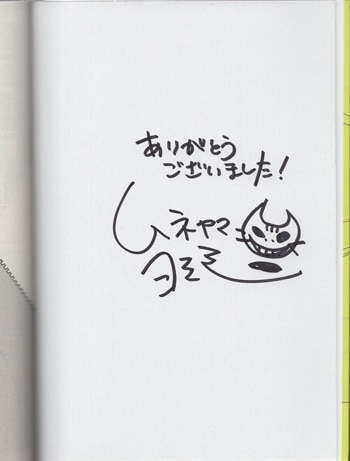 ありがとう
ございました！
ムネヤマ
ヨシミ